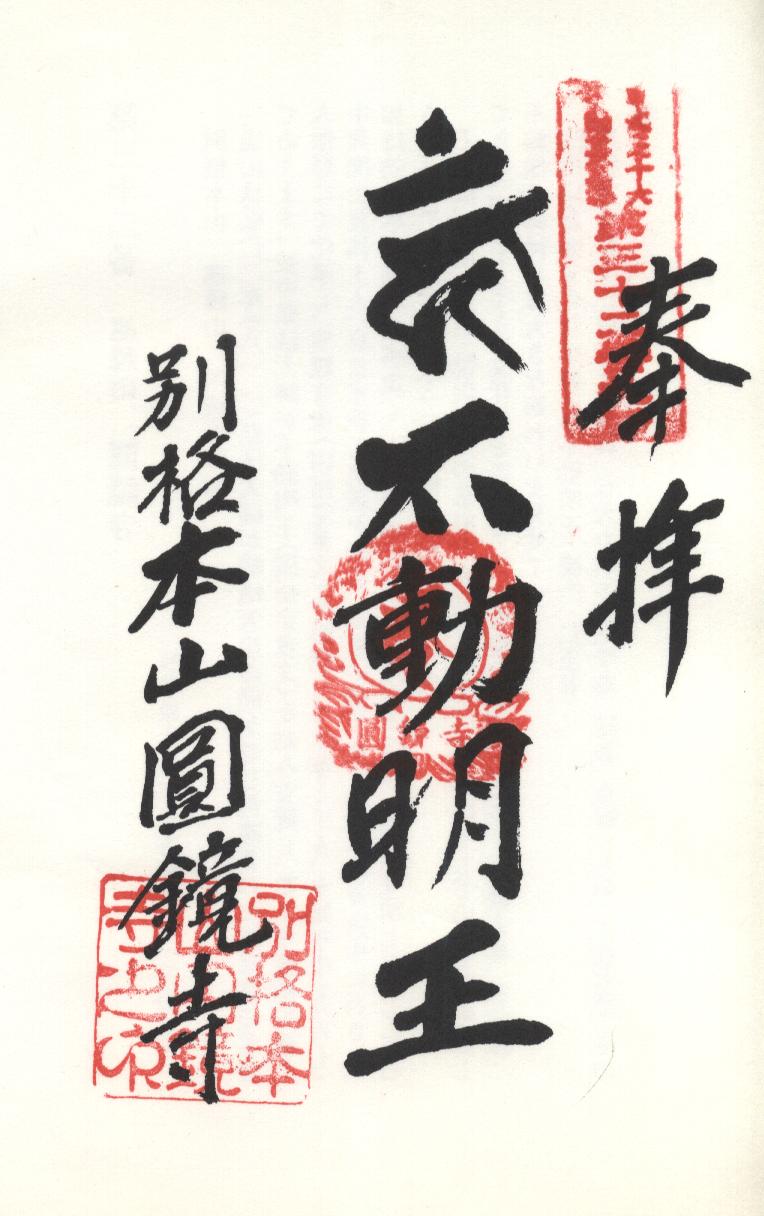 奉拝
不動明王
別格本山圓鏡寺
圓鏡寺
別格本
山圓鏡
寺之印